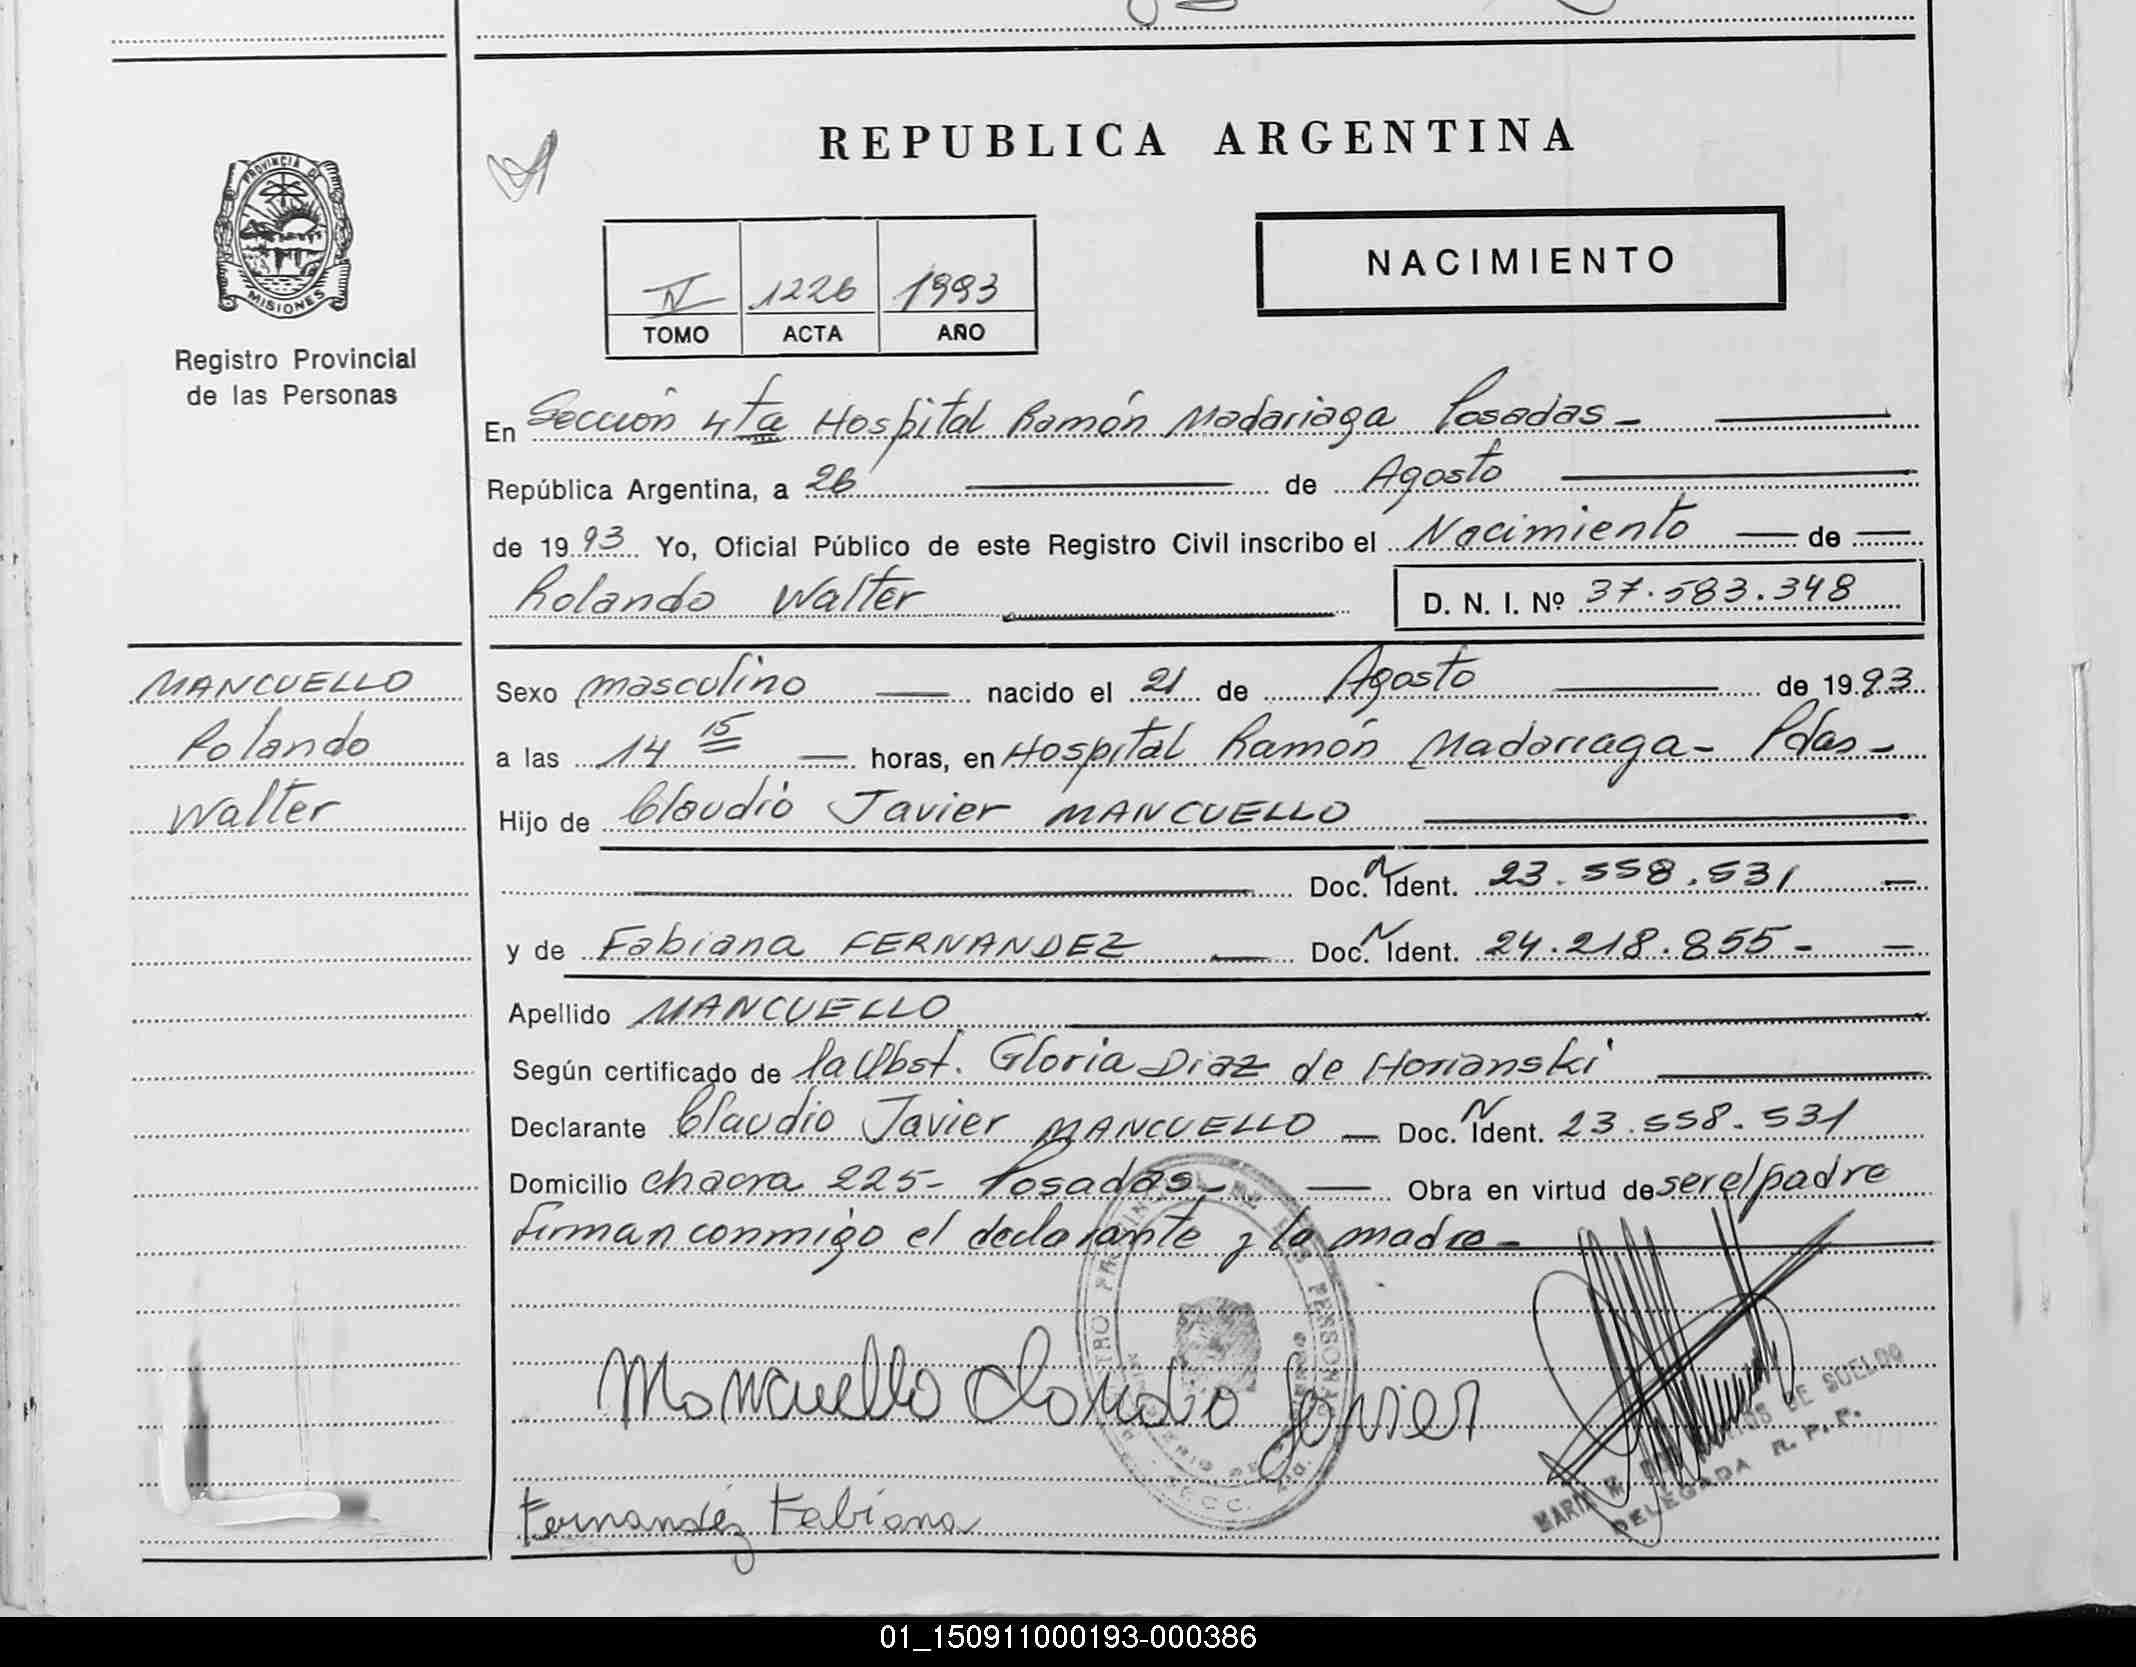 REPUBLICA ARGENTINA
PROVINCIA DE
MISIONES
Registro Provincial
de las Personas
NACIMIENTO
IV 1226 1993
TOMO ACTA AÑO
En Sección 4ta Hospital Ramón Madariaga Posadas -
República Argentina, a 26 de Agosto
de 1993 Yo, Oficial Público de este Registro Civil inscribo el Nacimiento de
Rolando Walter D. N. I. Nº 37.583.348
MANCUELLO
Rolando
Walter
Sexo masculino nacido el 21 de Agosto de 1993
a las 14 15 horas, en Hospital Ramón Madariaga - Pdas -
Hijo de Claudio Javier MANCUELLO
Doc. N Ident. 23.558.531
y de Fabiana FERNANDEZ Doc. N Ident. 24.218.855 -
Apellido MANCUELLO
Según certificado de la Obst. Gloria Diaz de Horianski
Declarante Claudio Javier MANCUELLO Doc. N Ident. 23.558.531
Domicilio chacra 225 - Posadas - Obra en virtud de ser el padre
firman conmigo el declarante y la madre -
Mancuello Claudio Javier
DE SUELDO
DELEGADA R. P. P.
Fernandez Fabiana
01_150911000193-000386